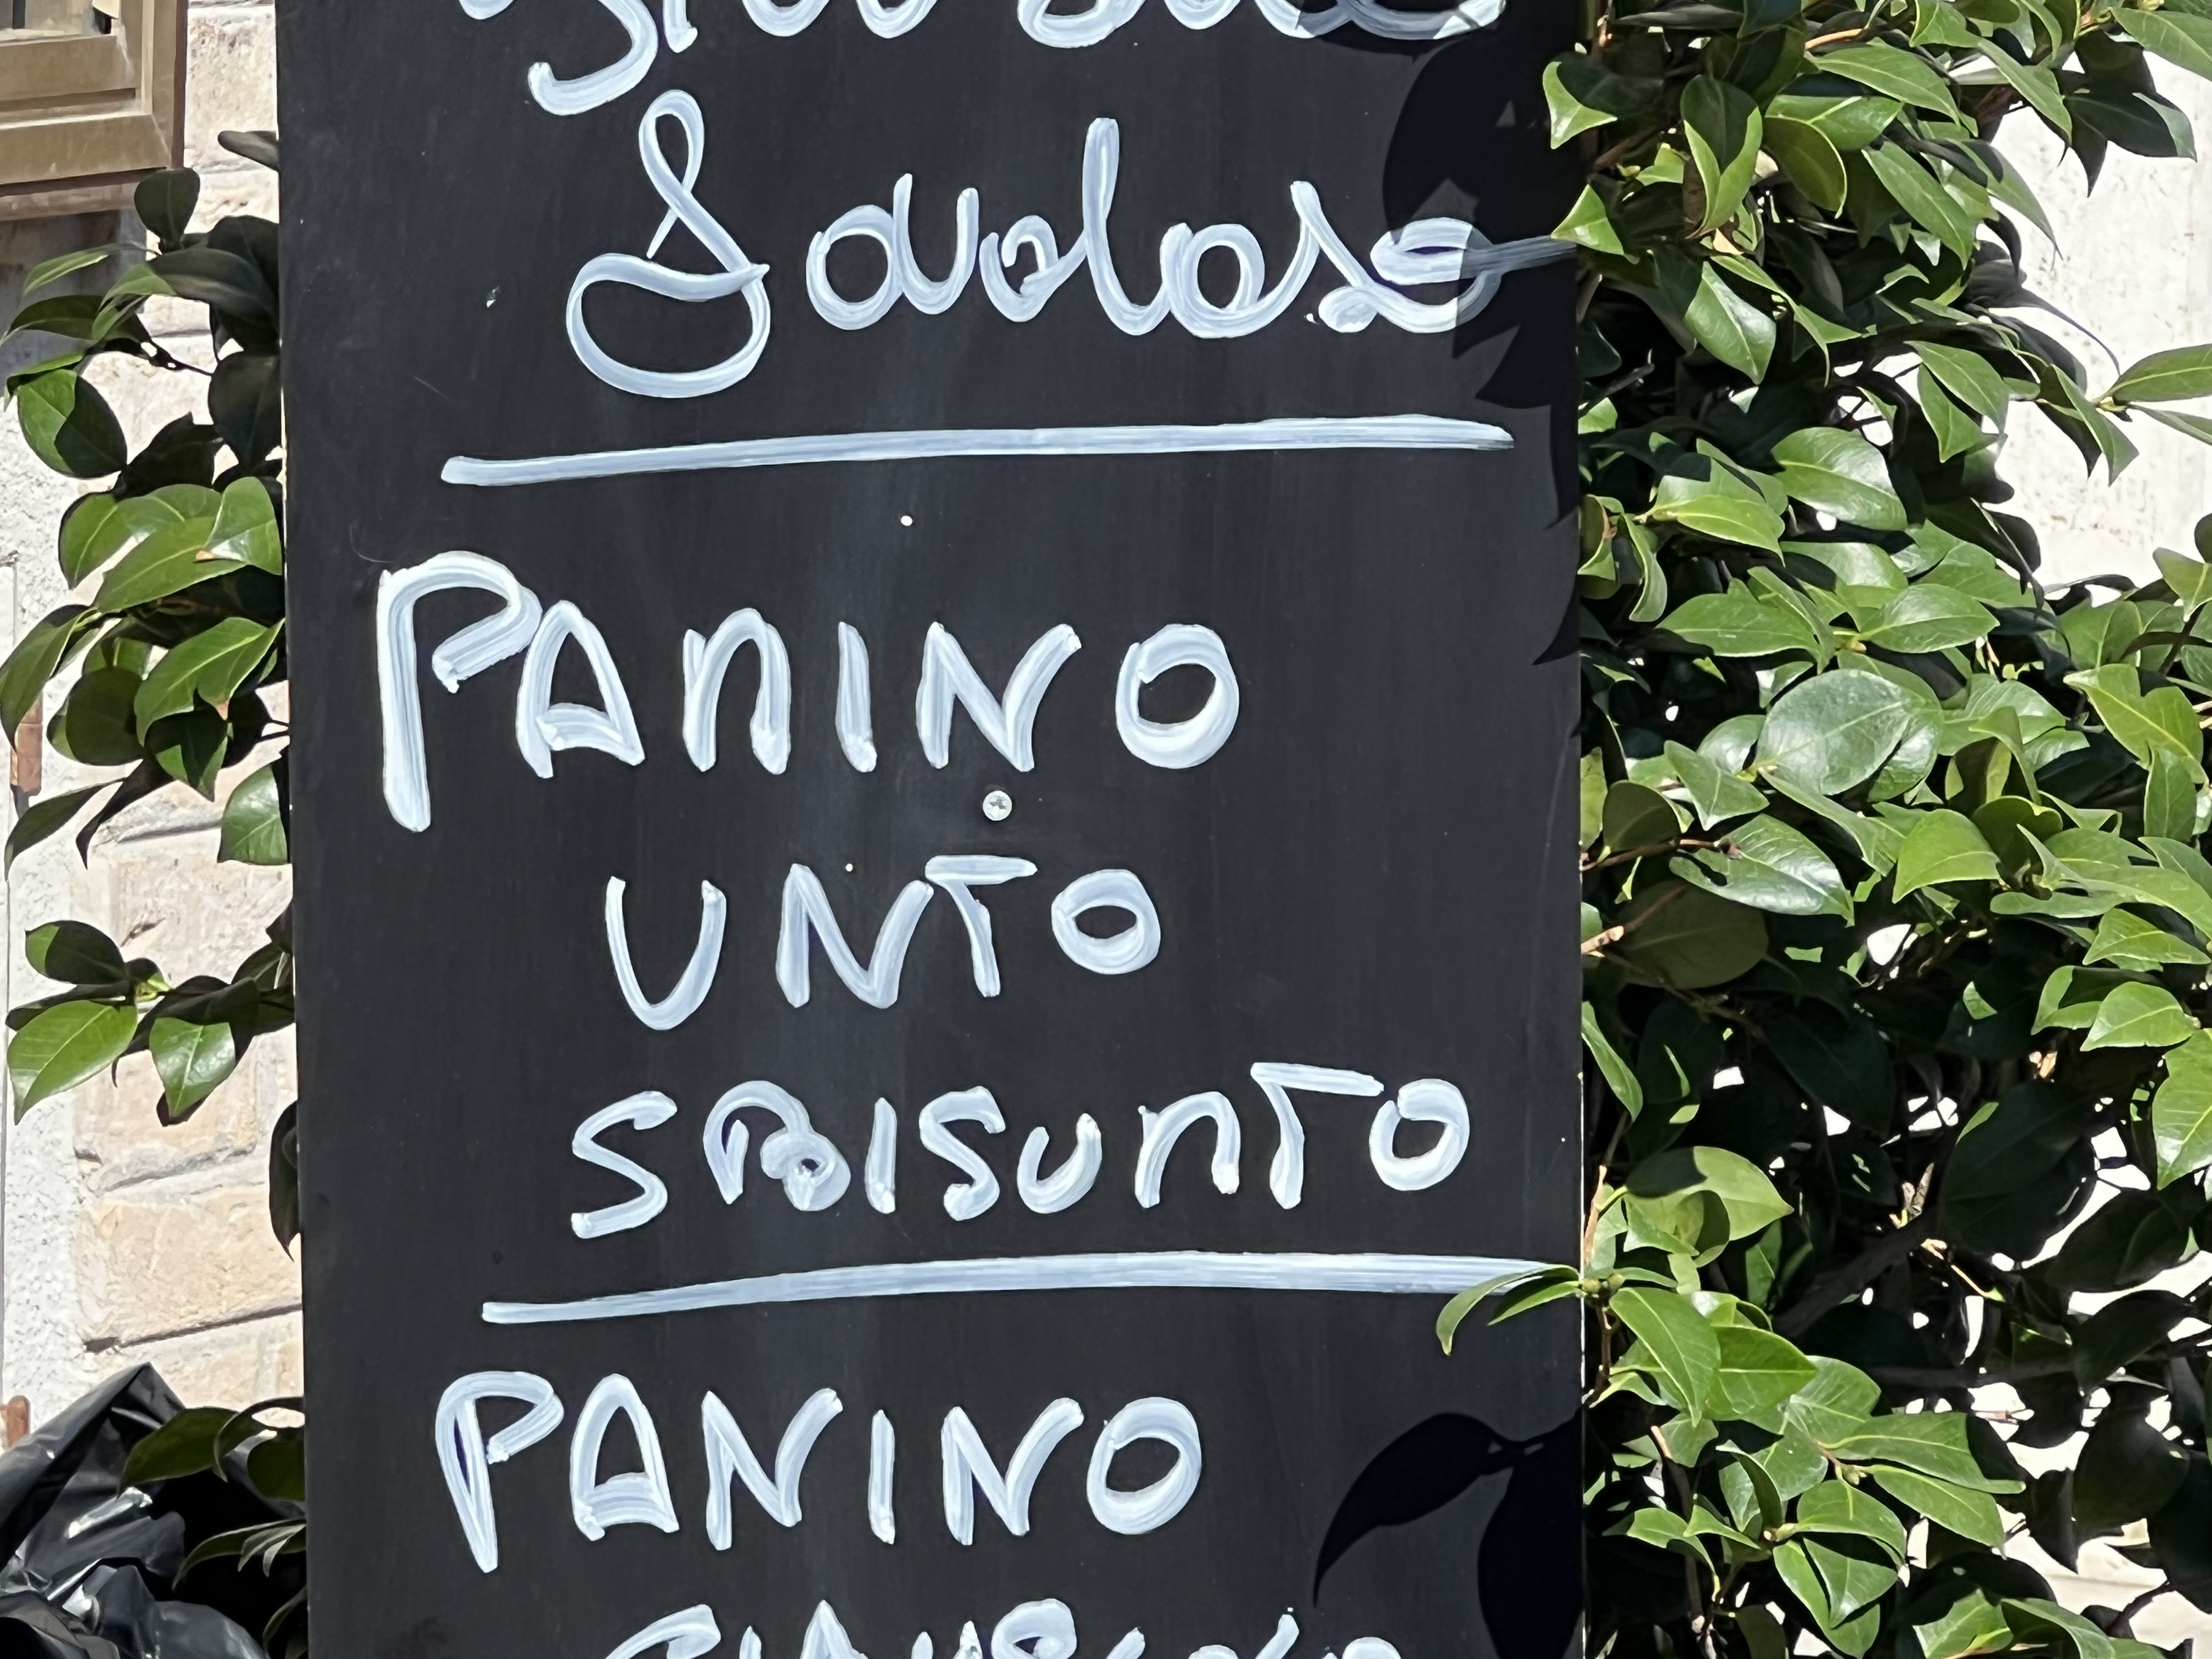 Favoloso
PANINO
UNTO
SBISUNTO
PANINO